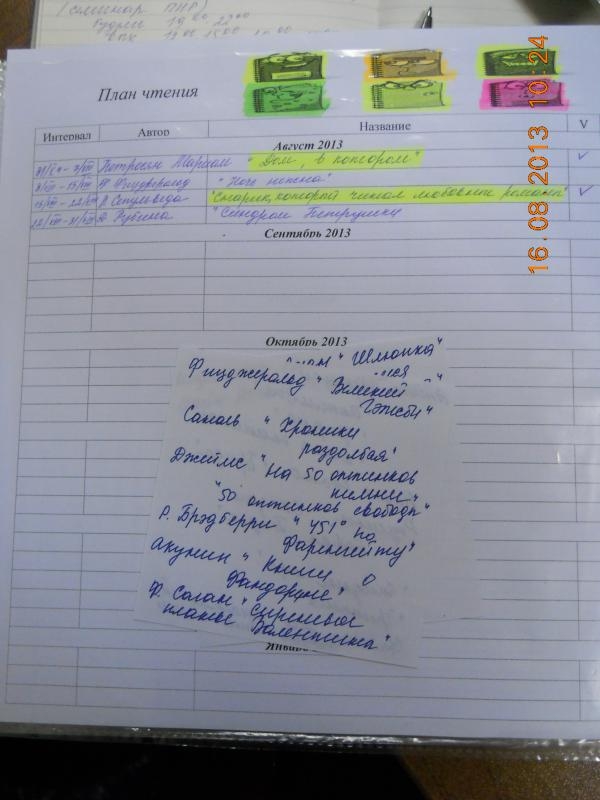 (семинар ПНР)
План чтения
Интервал Автор Название V
Август 2013
Петросян Мариам "Дом, в котором" ✓
Фицджеральд "Ночь нежна"
Сепульведа "Старик, который читал любовные романы" ✓
Рубина "Синдром Петрушки"
Сентябрь 2013
Октябрь 2013
"Шлюпка"
Фицджеральд "Великий
Гэтсби"
Самаль "Хроники
раздолбая"
Джеймс "На 50 оттенков
темнее"
"50 оттенков свободы"
Р. Брэдберри "451° по
Фаренгейту"
Акунин "Книги о
Фандорине"
Ф. Саган "Сиреневое
платье Валентины"
Январ
16.08.2013 10:24